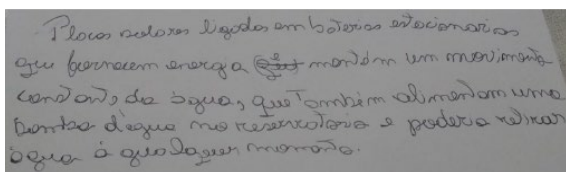 Placas solares ligadas em baterias estacionarias
que fornecem energia e mantém um movimento
constante da água, que também alimentam uma
bomba d'egua no reservatorio e poderia retirar
água á qualaquer momento.